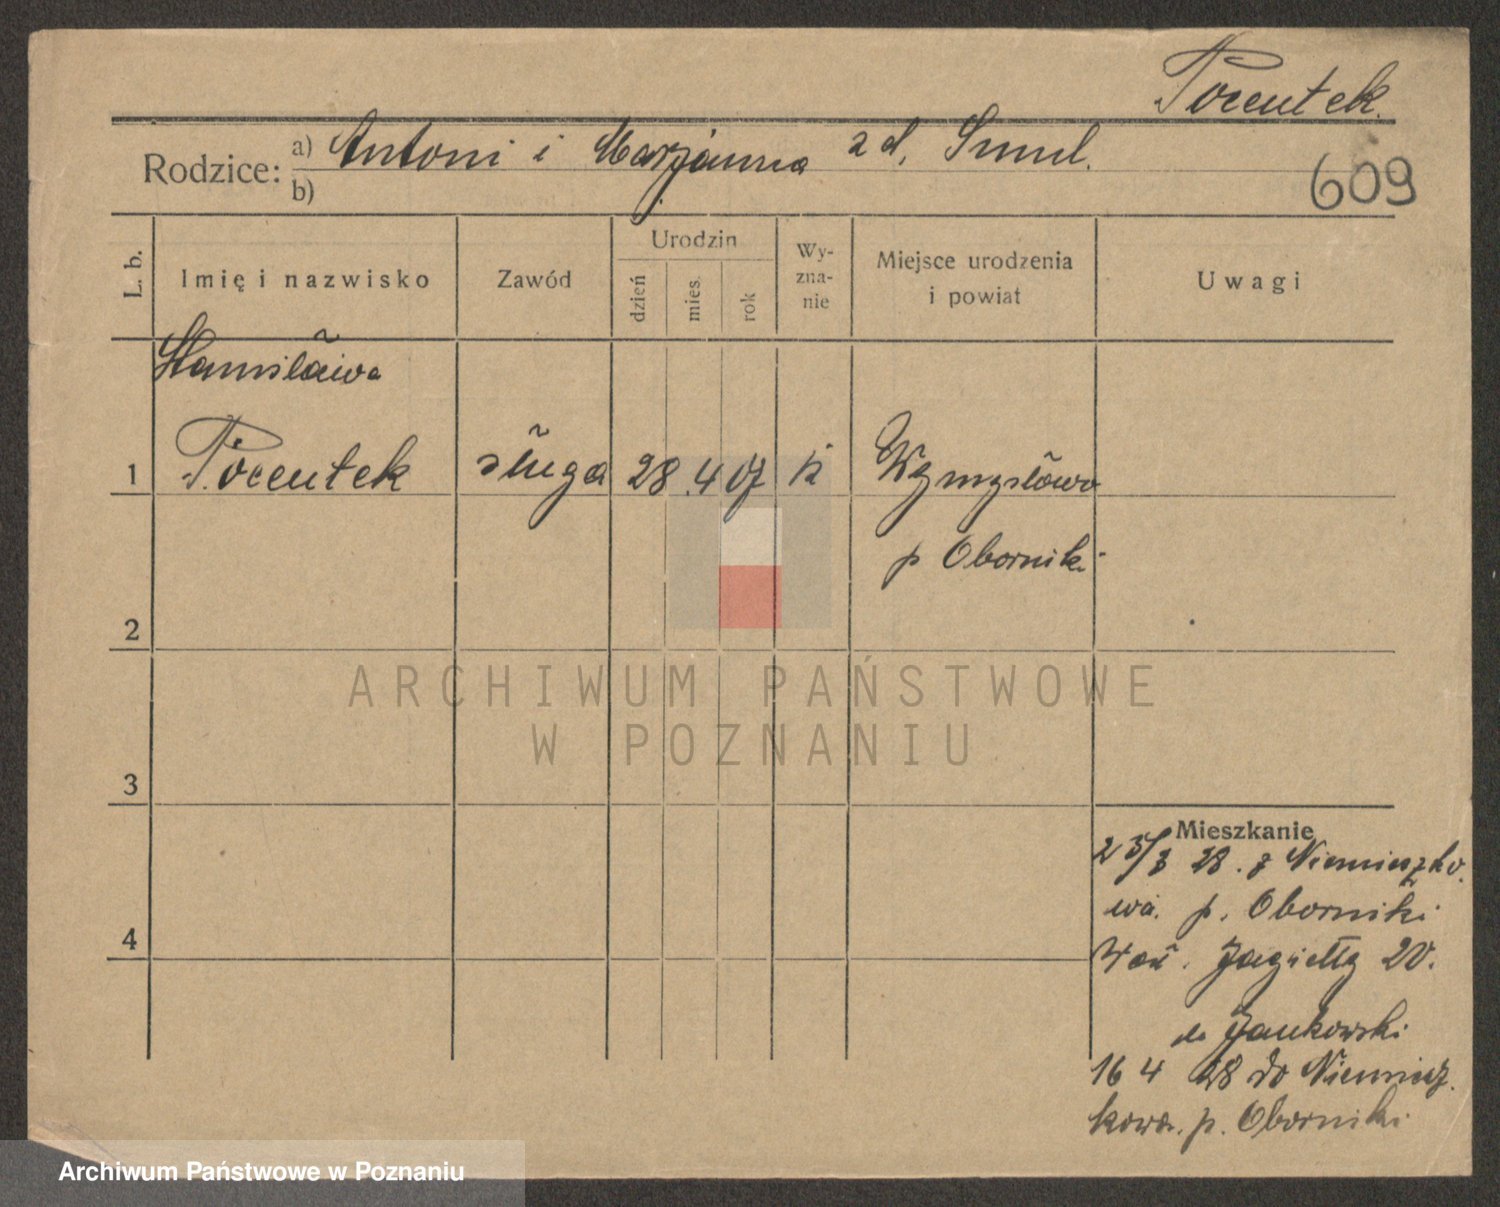 Pocentek.
Rodzice: a) Antoni i Marjanna z d. Smul.
b)
609
L. b.
Imię i nazwisko
Zawód
Urodzin
dzień
mies.
rok
Wy-
zna-
nie
Miejsce urodzenia
i powiat
Uwagi
Stanisława
1 Pocentek sługa 28 .4 07 k Wymysłowo
p Oborniki
2
3
4
Mieszkanie
23/3 28. z Niemieczko.
wa. p. Oborniki
Jagiełły 20.
Jankowski
16 4 28 do Niemiecz.
kowa. p. Oborniki
ARCHIWUM PAŃSTWOWE
W POZNANIU
Archiwum Państwowe w Poznaniu